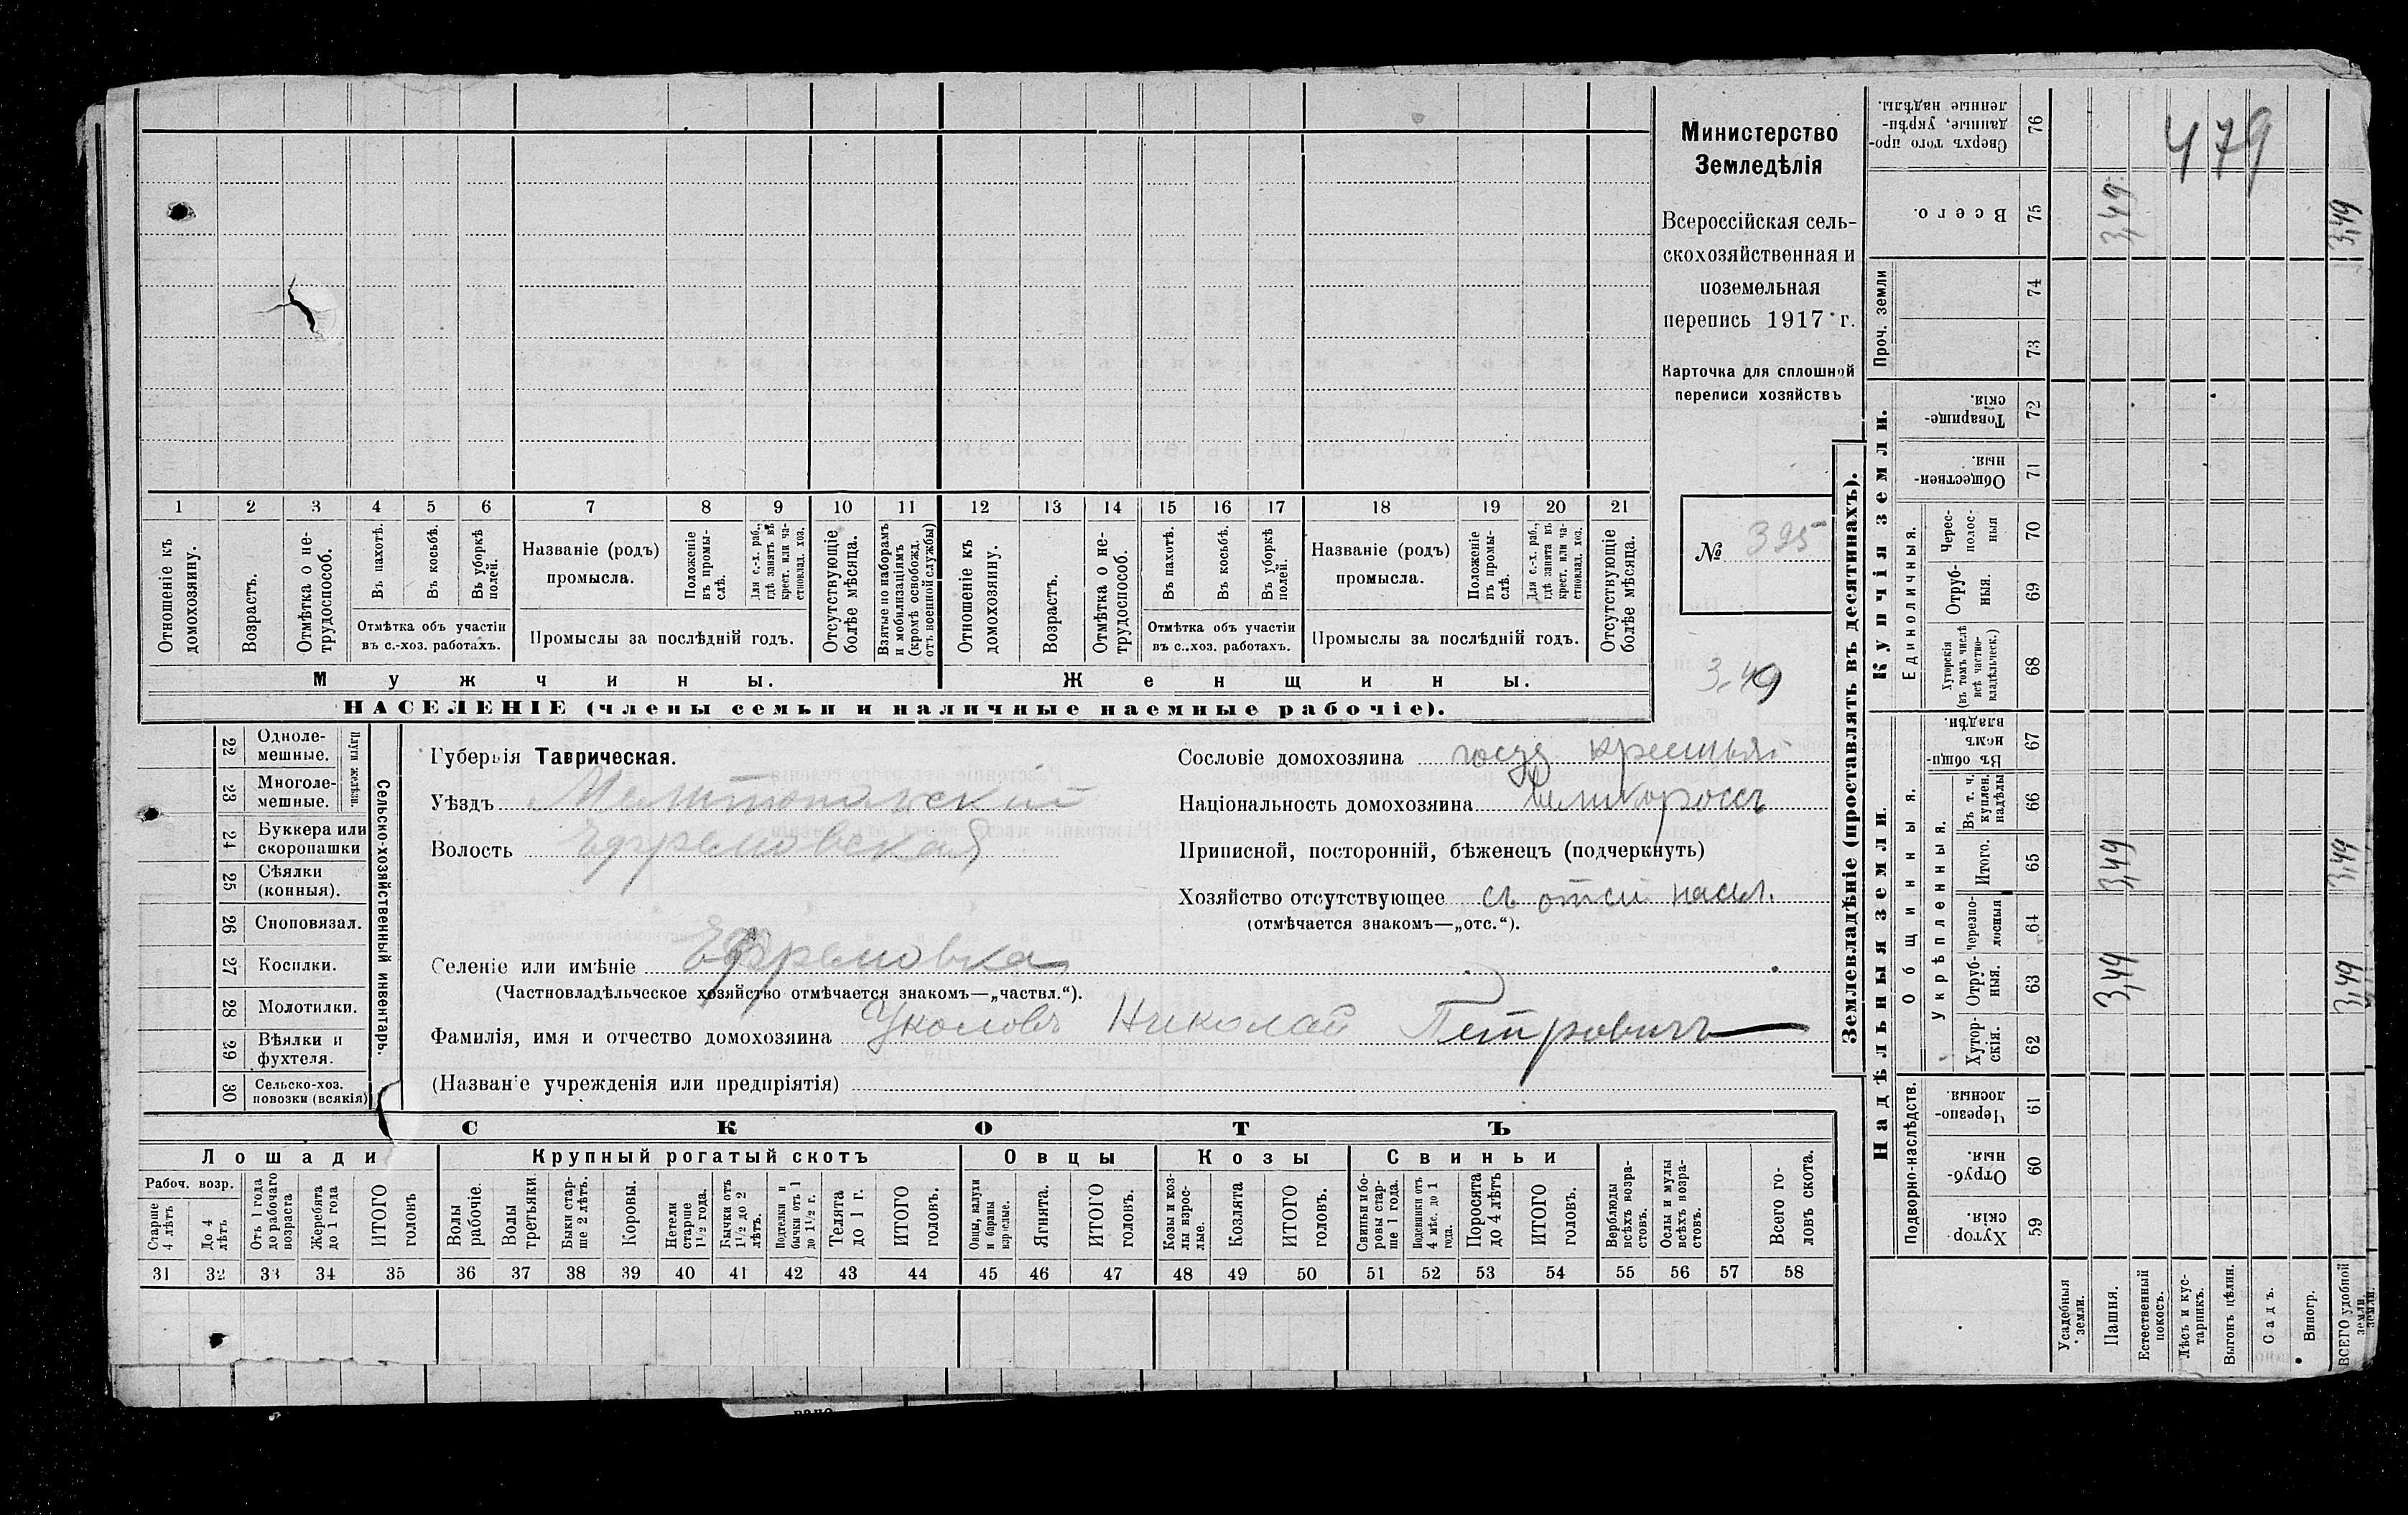 1 2 3 4 5 6 7 8 9 10 11 12 13 14 15 16 17 18 19 20 21
Отношеніе къ домохозяину.
Возрастъ.
Отмѣтка о нетрудоспособ.
Въ пахотѣ.
Въ косьбѣ.
Въ уборкѣ полей.
Отмѣтка объ участіи
въ с.-хоз. работахъ.
Названіе (родъ)
промысла.
Положеніе въ промыслѣ.
Для с.-х. раб., гдѣ занятъ въ крест. или частновлад. хоз.
Промыслы за послѣдній годъ.
Отсутствующіе болѣе мѣсяца.
Взятые по наборамъ и мобилизаціямъ (кромѣ освобожд. отъ военной службы)
Отношеніе къ домохозяину.
Возрастъ.
Отмѣтка о нетрудоспособ.
Въ пахотѣ.
Въ косьбѣ.
Въ уборкѣ полей.
Отмѣтка объ участіи
въ с.-хоз. работахъ.
Названіе (родъ)
промысла.
Положеніе въ промыслѣ.
Для с.-х. раб., гдѣ занята въ крест. или частновлад. хоз.
Промыслы за послѣдній годъ.
Отсутствующіе болѣе мѣсяца.
Мужчины.
Женщины.
НАСЕЛЕНІЕ (члены семьи и наличные наемные рабочіе).
Министерство
Земледѣлія
Всероссійская сель-
скохозяйственная и
поземельная
перепись 1917 г.
Карточка для сплошной
переписи хозяйствъ
№ 395
3,49
22 Одноле-
мешные.
23 Многоле-
мешные.
Плуги желѣзн.
24 Буккера или
скоропашки
25 Сѣялки
(конныя).
26 Сноповязал.
27 Косилки.
28 Молотилки.
29 Вѣялки и
фухтеля.
30 Сельско-хоз.
повозки (всякія)
Сельско-хозяйственный инвентарь.
Губернія Таврическая.
Уѣздъ Мелитопольскій
Волость Ефремовская
Селеніе или имѣніе Ефремовка
(Частновладѣльческое хозяйство отмѣчается знакомъ—„частвл.“).
Фамилія, имя и отчество домохозяина Уколовъ Николай Петровичъ
(Названіе учрежденія или предпріятія)
Сословіе домохозяина госуд. крестьян
Національность домохозяина великороссъ
Приписной, посторонній, бѣженецъ (подчеркнуть)
Хозяйство отсутствующее съ отсут. насел.
(отмѣчается знакомъ—„отс.“).
СКОТЪ
Лошади
Крупный рогатый скотъ
Овцы
Козы
Свиньи
Рабоч. возр.
Старше 4 лѣтъ
До 4 лѣтъ
Отъ 1 года до рабочаго возраста
Жеребята до 1 года
ИТОГО головъ
Волы рабочіе.
Волы третьяки
Быки старше 2 лѣтъ.
Коровы.
Нетели старше 1½ года.
Бычки отъ 1½ до 2 лѣтъ.
Подтелки и бычки отъ 1 до 1½ г.
Телята до 1 г.
ИТОГО головъ.
Овцы, валухи и бараны взрослые.
Ягнята.
ИТОГО головъ.
Козы и козлы взрослые.
Козлята
ИТОГО головъ.
Свиньи и боровы старше 1 года.
Подсвинки отъ 4 мѣс. до 1 года.
Поросята до 4 лѣтъ
ИТОГО головъ.
Верблюды всѣхъ возрастовъ.
Ослы и мулы всѣхъ возрастовъ.
Всего головъ скота.
31 32 33 34 35 36 37 38 39 40 41 42 43 44 45 46 47 48 49 50 51 52 53 54 55 56 57 58
Землевладѣніе (проставлять въ десятинахъ).
Надѣльныя земли.
Купчія земли.
Проч. земли
Подворно-наслѣдств.
Общинныя.
Укрѣпленныя.
Единоличныя.
Хуторскія. 59
Отрубныя. 60
Черезполосныя. 61
Хуторскія. 62
Отрубныя. 63
Черезполосныя 64
Итого. 65
Въ т. ч. куплен. надѣлы 66
Въ общинномъ владѣн. 67
Хуторскія (въ томъ числѣ всѣ частновладѣльческ.) 68
Отрубныя. 69
Чересполосныя 70
Общественныя. 71
Товарищескія. 72
73
74
Всего. 75
Сверхъ того проданные, укрѣпленные надѣлы. 76
479
3,49 3,49 3,49
3,49 3,49 3,49
Усадебныя земли.
Пашня.
Естественный покосъ.
Лѣсъ и кустарникъ.
Выгонъ цѣлин.
Садъ.
Виногр.
ВСЕГО удобной земли.